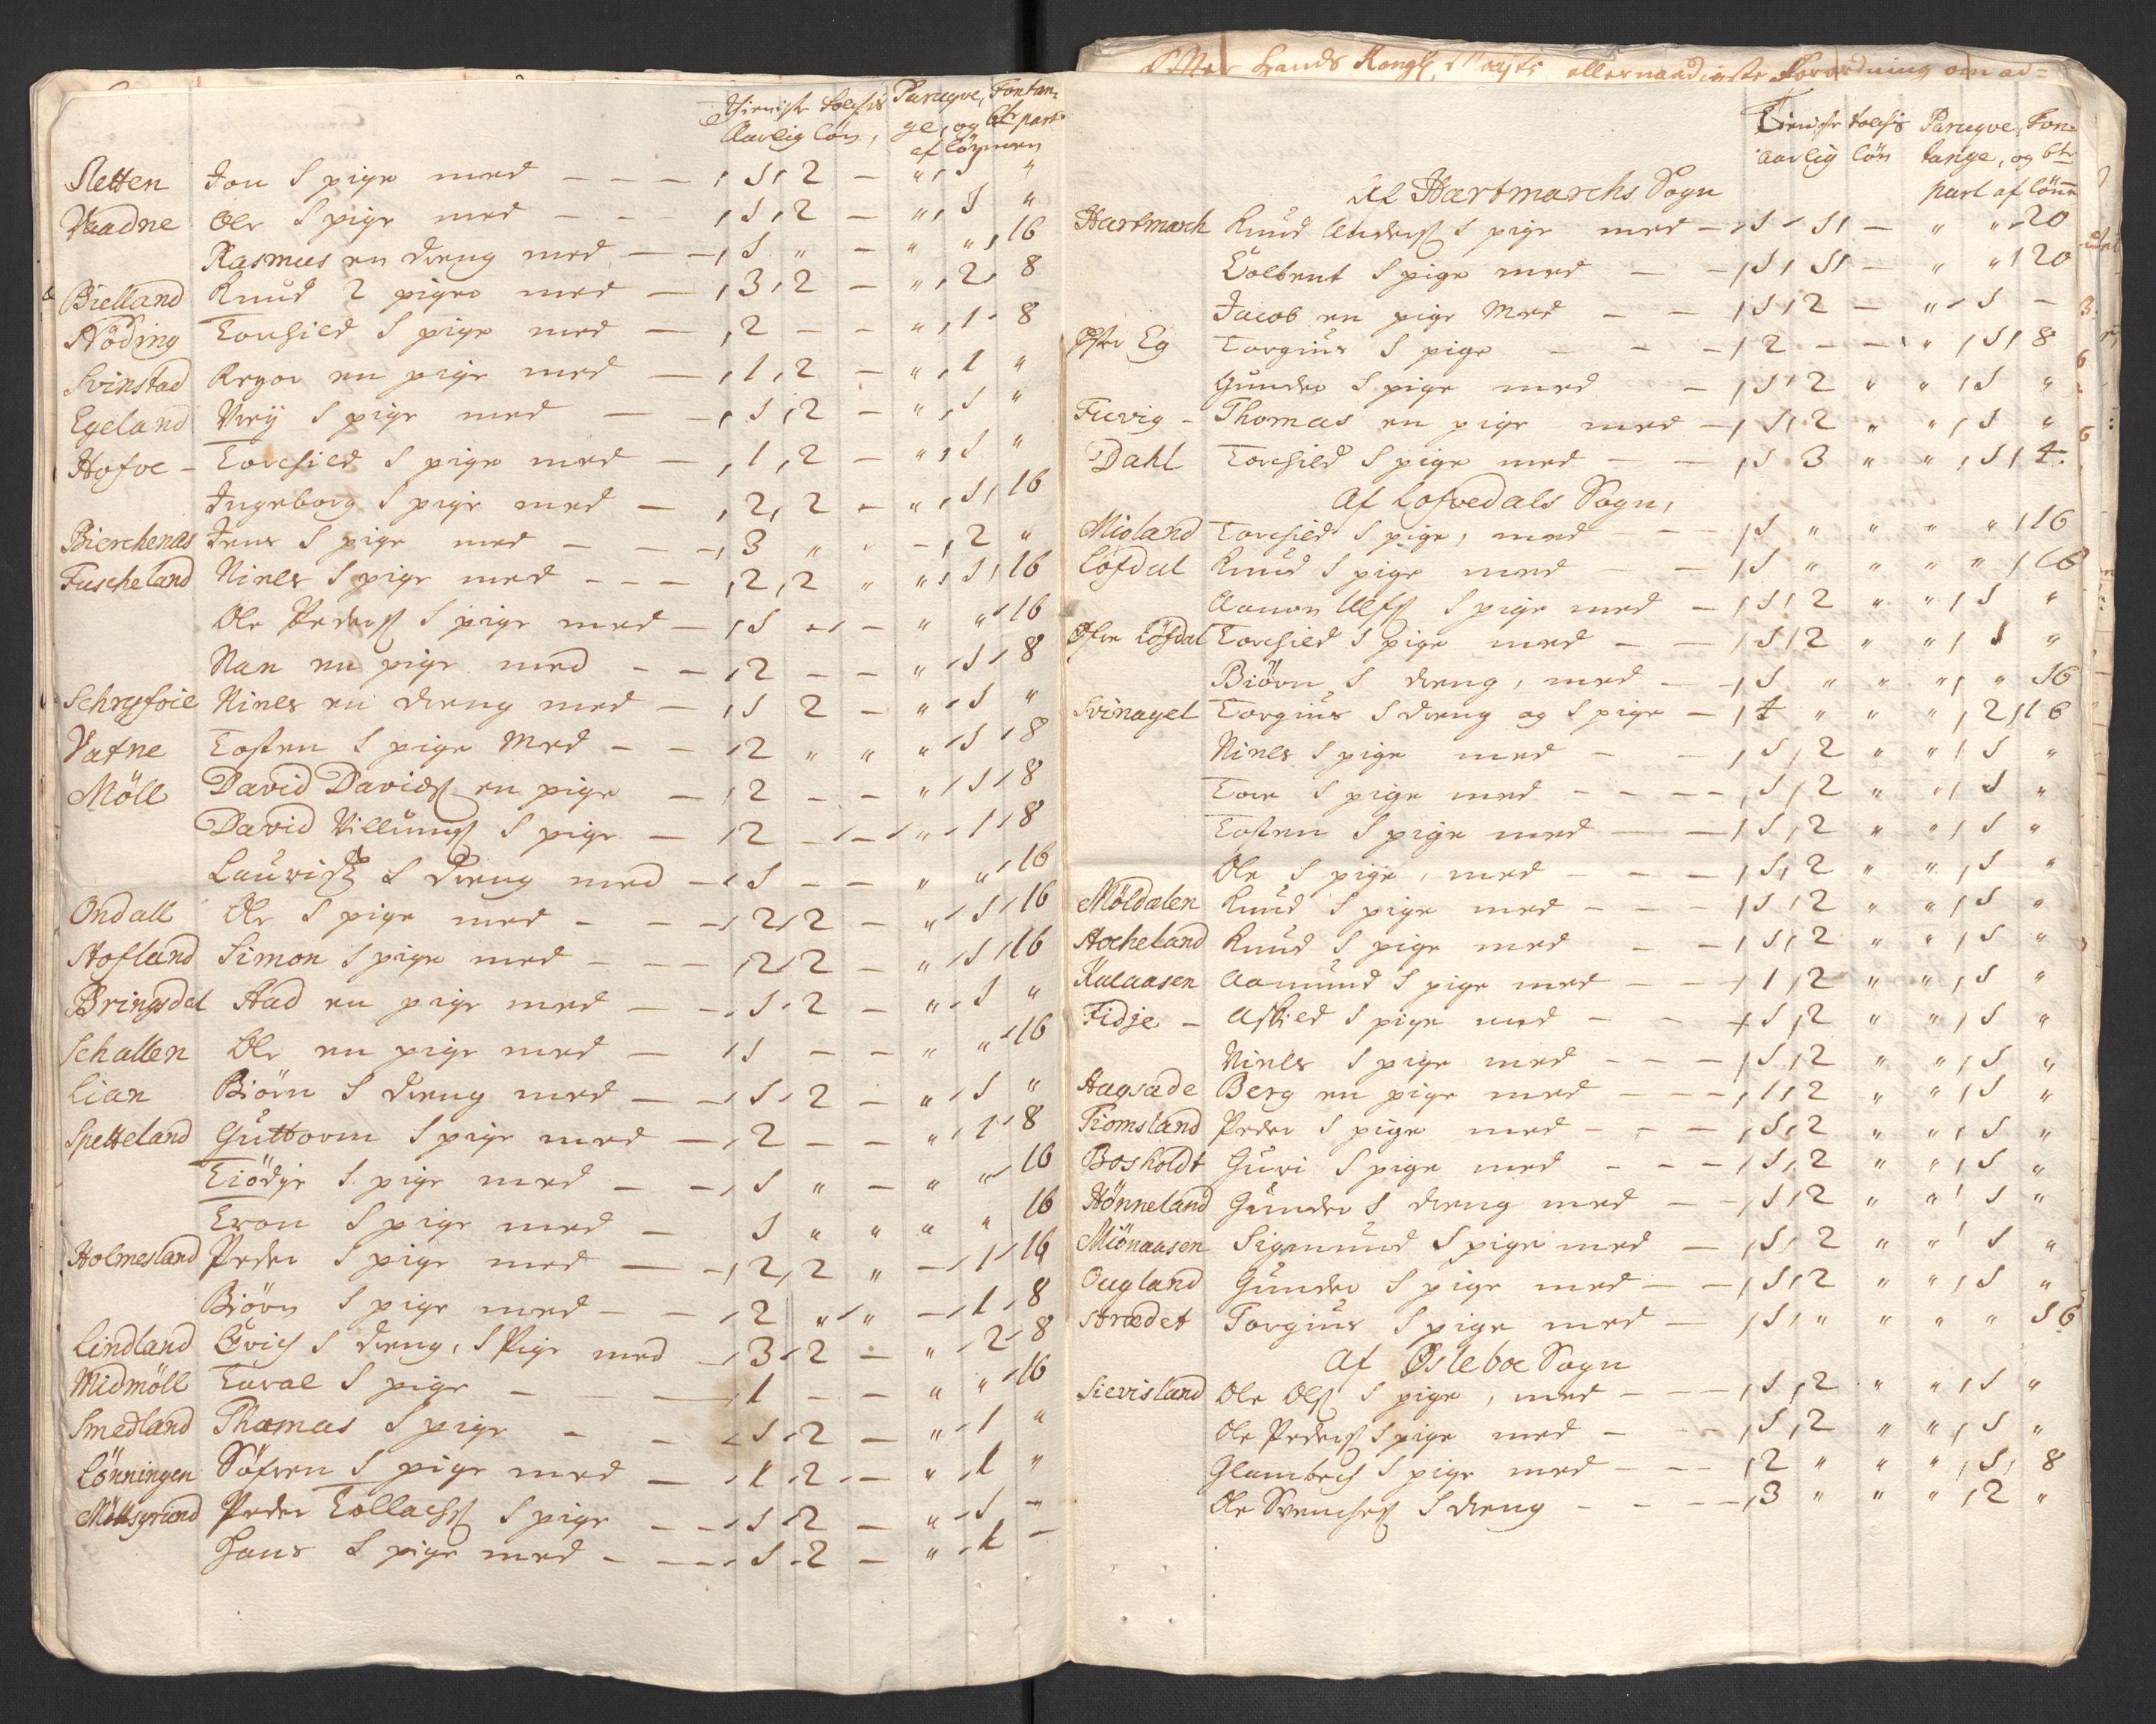 Tieniste folchis Paruqve, Fontan-
Aarlig løn, ge, og 6te part
af lönnen
Sletten Jon 1 pige med — — — 1, 2 — " , 1 "
Vaadne Ole 1 pige med — — 1, 2 — " , 1 "
Rasmus en dreng med — — 1 " — " " , 16
Bielland Knud 2 piger med — 3, 2 — " , 2, 8
Nöding Torchild 1 pige med — 2 — — " , 1, 8
Svinstad Reyer en pige med — 1, 2 — " , 1 "
Egeland Vrej 1 pige med — — 1, 2 — " , 1 "
Hofve — Torchild 1 pige med — 1, 2 — " , 1 "
Ingeborg 1 pige med — 2, 2 — " , 1, 16
Bierchenas Jens 1 pige med — — — 3 " " — , 2 "
Fuscheland Niels 1 pige med — — — 2, 2 " " , 1, 16
Ole Peders 1 pige med — 1 — — " " 16
Nan en pige med — — 2 — — " 1, 8
Schrefoie Niels en dreng med — 1 2 — " 1 "
Vatne Tosten 1 pige Med — — 2 " " " 1, 8
Möll David Davids en pige — 2 — — " 1, 8
David Villums 1 pige — 2 — — " 1, 8
Lauridtz 1 dreng med — 1 — — " " 16
Ondall Ole 1 pige med — — — 2, 2 — " 1, 16
Hofland Simon 1 pige med — — — 2, 2 — " 1, 16
Bringsdal Aad en pige med — — 1, 2 — " 1 "
Schallen Ole en pige med — 1 — — " " 16
Lian Biörn 1 dreng med — — 1, 2 — " 1 "
Spetteland Guttorm 1 pige med — 2 — — " , 1, 8
Tiödje 1 pige med — — 1 " — " " 16
Tron 1 pige med — 1 " " " " 16
Holmesland Peder 1 pige med — — 2, 2 " — 1, 16
Biörn 1 pige med — — 2 " " — 1, 8
Lindland Erich 1 dreng, 1 Pige med — 3, 2 — " 2, 8
Midmöll Taral 1 pige — — — 1 — — " " 16
Smedland Thomas 1 pige — — 1, 2 — " 1 "
Lönningen Söfren 1 pige med — 1, 2 — " 1 "
Möllsgrund Peder Tollachs 1 pige — — 1, 2 — " 1 —
Hans 1 pige med — — — 1, 2 — " 1 —
Efter Hands Kongl. Mayts allernaadigste Forordning om ad=
Tieniste folchis Paruqve, Fon-
aarlig løn tange, og 6te
part af lönn
Af Hartmarchs Sogn
Hartmarch Knud Anders 1 pige med — 1, 1 — " " 20
Tolbent 1 pige med — — 1, 1 — " " 20
Jacob en pige Med — — 1, 2 — " 1 —
Øfre Eg Torgius 1 pige — — — 2 — — " , 1, 8
Gunder 1 pige med — 1, 2 " " , 1 "
Fuvig — Thomas en pige med — 1, 2 " " , 1 "
Dahl Torchild 1 pige med — — 1 3 " " , 1, 4
Af Lofvedals Sogn,
Mioland Torchild 1 pige, med — — 1 " " " " 16
Löfdal Knud 1 pige med — — 1 " " " " 16
Aanon Ulfs 1 pige med — 1, 2 " " , 1 "
Øfre Löfdal Torchild 1 pige med — — 1, 2 " " , 1 "
Biörn 1 dreng, med — — 1 " " " , " 16
Svinagel Torgius 1 dreng og 1 pige — 4 " " " , 2, 16
Niels 1 pige med — — 1, 2 " " , 1 "
Tore 1 pige med — — — — 1, 2 " " , 1 "
Tosten 1 pige med — — 1, 2 " " , 1 "
Ole 1 pige, med — — — 1, 2 " " , 1 "
Möldalen Knud 1 pige med — — — 1, 2 " " , 1 "
Hocheland Knud 1 pige med — — 1, 2 " " , 1 "
Kalaasen Aamund 1 pige med — — 1, 2 " " , 1 "
Fidje — Aschild 1 pige med — — 1, 2 " " , 1 "
Niels 1 pige med — — — 1, 2 " " , 1 "
Hagsade Berg en pige med — — — 1, 2 " " , 1 "
Tiomsland Peder 1 pige med — — — 1, 2 " " , 1 "
Bosholdt Guri 1 pige med — — — 1, 2 " " , 1 "
Hönneland Gunder 1 dreng med — — 1, 2 " " , 1 "
Miönaasen Sigmund 1 pige med — 1, 2 " " , 1 "
Ougland Gunder 1 pige med — — 1, 2 " " , 1 "
Strædet Torgius 1 pige med — 1, " " " " 16
Af Øsleboe Sogn
Sievisland Ole Ols 1 pige, med — — — 1, 2 " " , 1 "
Ole Peders 1 pige med — — 1, 2 " " , 1 "
Glambech 1 pige med — — — 2 " " " , 1, 8
Ole Svenches 1 dreng — — — — 3 " " " , 2 "